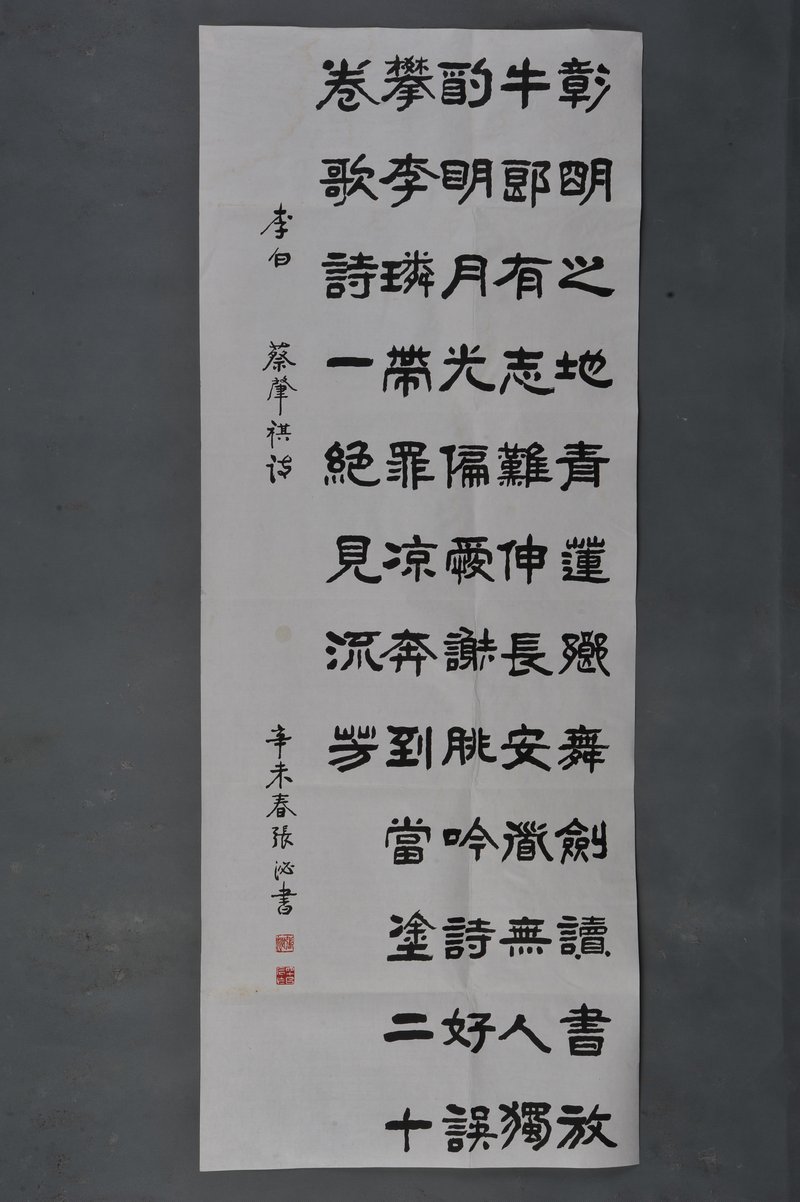 彰明之地青蓮鄉舞劍讀書放
牛郎有志難伸長安道無人獨
酌明月光偏愛謝朓吟詩好誤
攀李璘帶罪凉奔到當塗二十
卷歌詩一絕見流芳
李白 蔡肇祺诗
辛未春張泌書